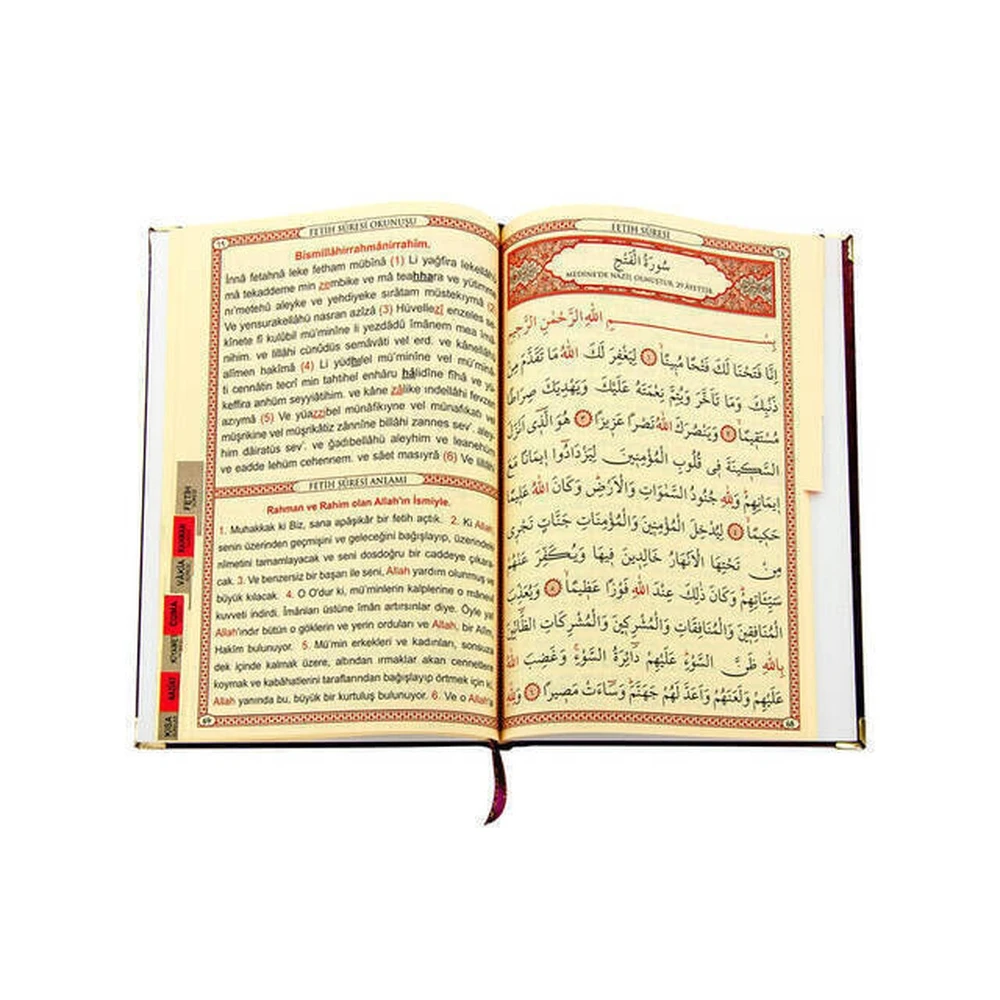 FETİH SÛRESİ OKUNUŞU
Bismillâhirrahmânirrahîm.
İnnâ fetahnâ leke fetham mübînâ (1) Li yağfira lekellâhü
mâ tekaddeme min zembike ve mâ teahhara ve yütimme
nı'metehû aleyke ve yehdiyeke sırâtam müstekıymâ (2)
Ve yensurakellâhü nasran azîzâ (3) Hüvellezî enzeles se-
kînete fî kulûbil mü'minîne li yezdâdû îmânem mea îmâ-
nihim. ve lillâhi cünûdüs semâvâti vel erd. ve kânellâhü
alîmen hakîmâ (4) Li yüdhılel mü'minîne vel mü'minâ-
ti cennâtin tecrî min tahtihel enhâru hâlidîne fîhâ ve yü-
keffira anhüm seyyiâtihim. ve kâne zâlike ındellâhi fevzen
azıymâ (5) Ve yüazzibel münâfikıyne vel münafikâti vel
müşrikîne vel müşrikâtiz zânnîne billâhi zannes sev'. aley-
him dâiratüs sev'. ve ğadıbellâhü aleyhim ve leanehüm
ve eadde lehüm cehennem. ve sâet masıyrâ (6) Ve lillâhi
FETİH SÛRESİ ANLAMI
Rahman ve Rahim olan Allah'ın İsmiyle.
1. Muhakkak ki Biz, sana apâşikâr bir fetih açtık. 2. Ki Allah,
senin üzerinden geçmişini ve geleceğini bağışlayıp, üzerindeki
nîmetini tamamlayacak ve seni dosdoğru bir caddeye çıkara-
cak. 3. Ve benzersiz bir başarı ile seni, Allah yardım olunmuş ve
büyük kılacak. 4. O O'dur ki, mü'minlerin kalplerine o mânevî
kuvveti indirdi. Îmânları üstüne îman artırsınlar diye. Öyle ya!
Allah'ındır bütün o göklerin ve yerin orduları ve Allah, bir Alîm,
Hakîm bulunuyor. 5. Mü'min erkekleri ve kadınları, sonsuza
dek içinde kalmak üzere, altından ırmaklar akan cennetlere
koymak ve kabâhatlerini taraflarından bağışlayıp örtmek için ki,
Allah yanında bu, büyük bir kurtuluş bulunuyor. 6. Ve o Allah'a
69
FETİH
VÂKIA
CUMA
KISA
FETİH SÛRESİ
سُورَةُ الْفَتْحِ
MEDİNE'DE NAZİL OLMUŞTUR, 29 ÂYETTİR
بِسْمِ اللّٰهِ الرَّحْمٰنِ الرَّحِيمِ
اِنَّا فَتَحْنَا لَكَ فَتْحًا مُبِينًا ۙ ﴿١﴾ لِيَغْفِرَ لَكَ اللّٰهُ مَا تَقَدَّمَ مِنْ
ذَنْبِكَ وَمَا تَاَخَّرَ وَيُتِمَّ نِعْمَتَهُ عَلَيْكَ وَيَهْدِيَكَ صِرَاطًا
مُسْتَقِيمًا ۙ ﴿٢﴾ وَيَنْصُرَكَ اللّٰهُ نَصْرًا عَزِيزًا ﴿٣﴾ هُوَ الَّذِى اَنْزَلَ
السَّكِينَةَ فِى قُلُوبِ الْمُؤْمِنِينَ لِيَزْدَادُٓوا اِيمَانًا مَعَ
اِيمَانِهِمْ وَلِلّٰهِ جُنُودُ السَّمٰوَاتِ وَالْاَرْضِ وَكَانَ اللّٰهُ عَلِيمًا
حَكِيمًا ۙ ﴿٤﴾ لِيُدْخِلَ الْمُؤْمِنِينَ وَالْمُؤْمِنَاتِ جَنَّاتٍ تَجْرِى
مِنْ تَحْتِهَا الْاَنْهَارُ خَالِدِينَ فِيهَا وَيُكَفِّرَ عَنْهُمْ
سَيِّـَٔاتِهِمْ وَكَانَ ذٰلِكَ عِنْدَ اللّٰهِ فَوْزًا عَظِيمًا ۙ ﴿٥﴾ وَيُعَذِّبَ
الْمُنَافِقِينَ وَالْمُنَافِقَاتِ وَالْمُشْرِكِينَ وَالْمُشْرِكَاتِ الظَّٓانِّينَ
بِاللّٰهِ ظَنَّ السَّوْءِ عَلَيْهِمْ دَٓائِرَةُ السَّوْءِ وَغَضِبَ اللّٰهُ
عَلَيْهِمْ وَلَعَنَهُمْ وَاَعَدَّ لَهُمْ جَهَنَّمَ وَسَٓاءَتْ مَصِيرًا ﴿٦﴾ وَلِلّٰهِ
68